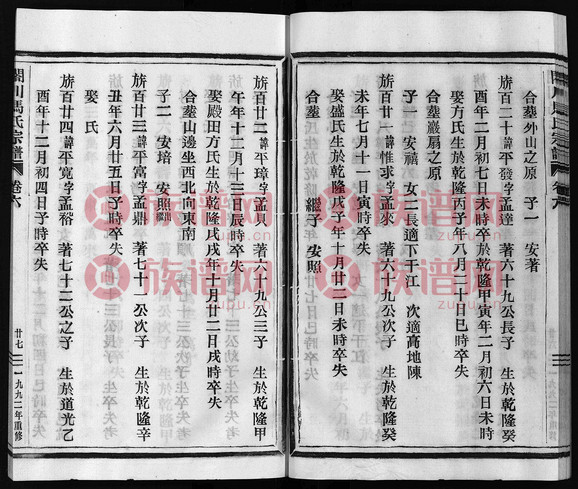 合塟外山之原 子一 安著
旂百二十 諱平發字孟達 著六十九公長子 生於乾隆癸
酉年二月初七日未時卒於乾隆甲寅年二月初六日未時
娶 氏生於乾隆丙子年八月二十日巳時卒失
合塟嚴扇之原
子一 安禧 女二長適下干江 次適高地陳
旂百廿一 諱惟求字孟來 著六十九公次子 生於乾隆癸
未年七月十一日寅時卒失
娶盛氏生於乾隆戊子年十月廿二日未時卒失
合塟 繼子 安照
旂百廿二 諱平璋字孟貝 著六十九公三子 生於乾隆甲
午年十二月十三日辰時卒失
娶殿田方氏生於乾隆戊戌年十月廿二日戌時卒失
合塟山邊坐西北向東南
子二 安培 安照
旂百廿三 諱平富字孟鼎 著七十一公次子 生於乾隆辛
丑年六月廿五日子時卒失
娶 氏
旂百廿四 諱平寬字孟裕 著七十二公之子 生於道光乙
酉年十二月初四日子時卒失
閣川馮氏宗譜 卷六 廿七 一九九二年重修
族谱网
族谱网
族谱网
族谱网